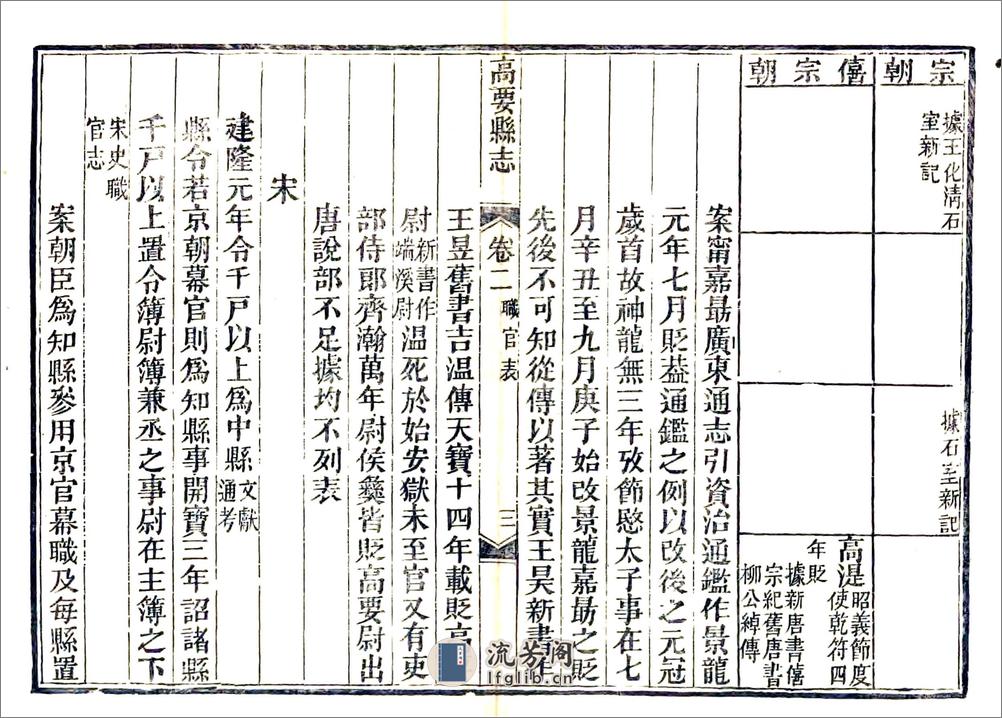 宗朝
據王化清石
室新記
據石室新記
僖宗朝
高湜昭義節度
使乾符四
年貶
據新唐書僖
宗紀舊唐書
柳公綽傳
案甯嘉勗廣東通志引資治通鑑作景龍
元年七月貶葢通鑑之例以改後之元冠
歲首故神龍無三年攷節愍太子事在七
月辛丑至九月庚子始改景龍嘉勗之貶
先後不可知從傳以著其實王昊新書作
王昱舊書吉溫傳天寶十四年載貶高
高要縣志
卷二
職官表
三
尉新書作端溪尉溫死於始安獄未至官又有吏
部侍郎齊瀚萬年尉侯彝皆貶高要尉出
唐說部不足據均不列表
宋
建隆元年令千戶以上爲中縣文獻通考
縣令若京朝幕官則爲知縣事開寶三年詔諸縣
千戶以上置令簿尉簿兼丞之事尉在主簿之下
宋史職
官志
案朝臣爲知縣參用京官幕職及每縣置
流芳阁
lfglib.cn